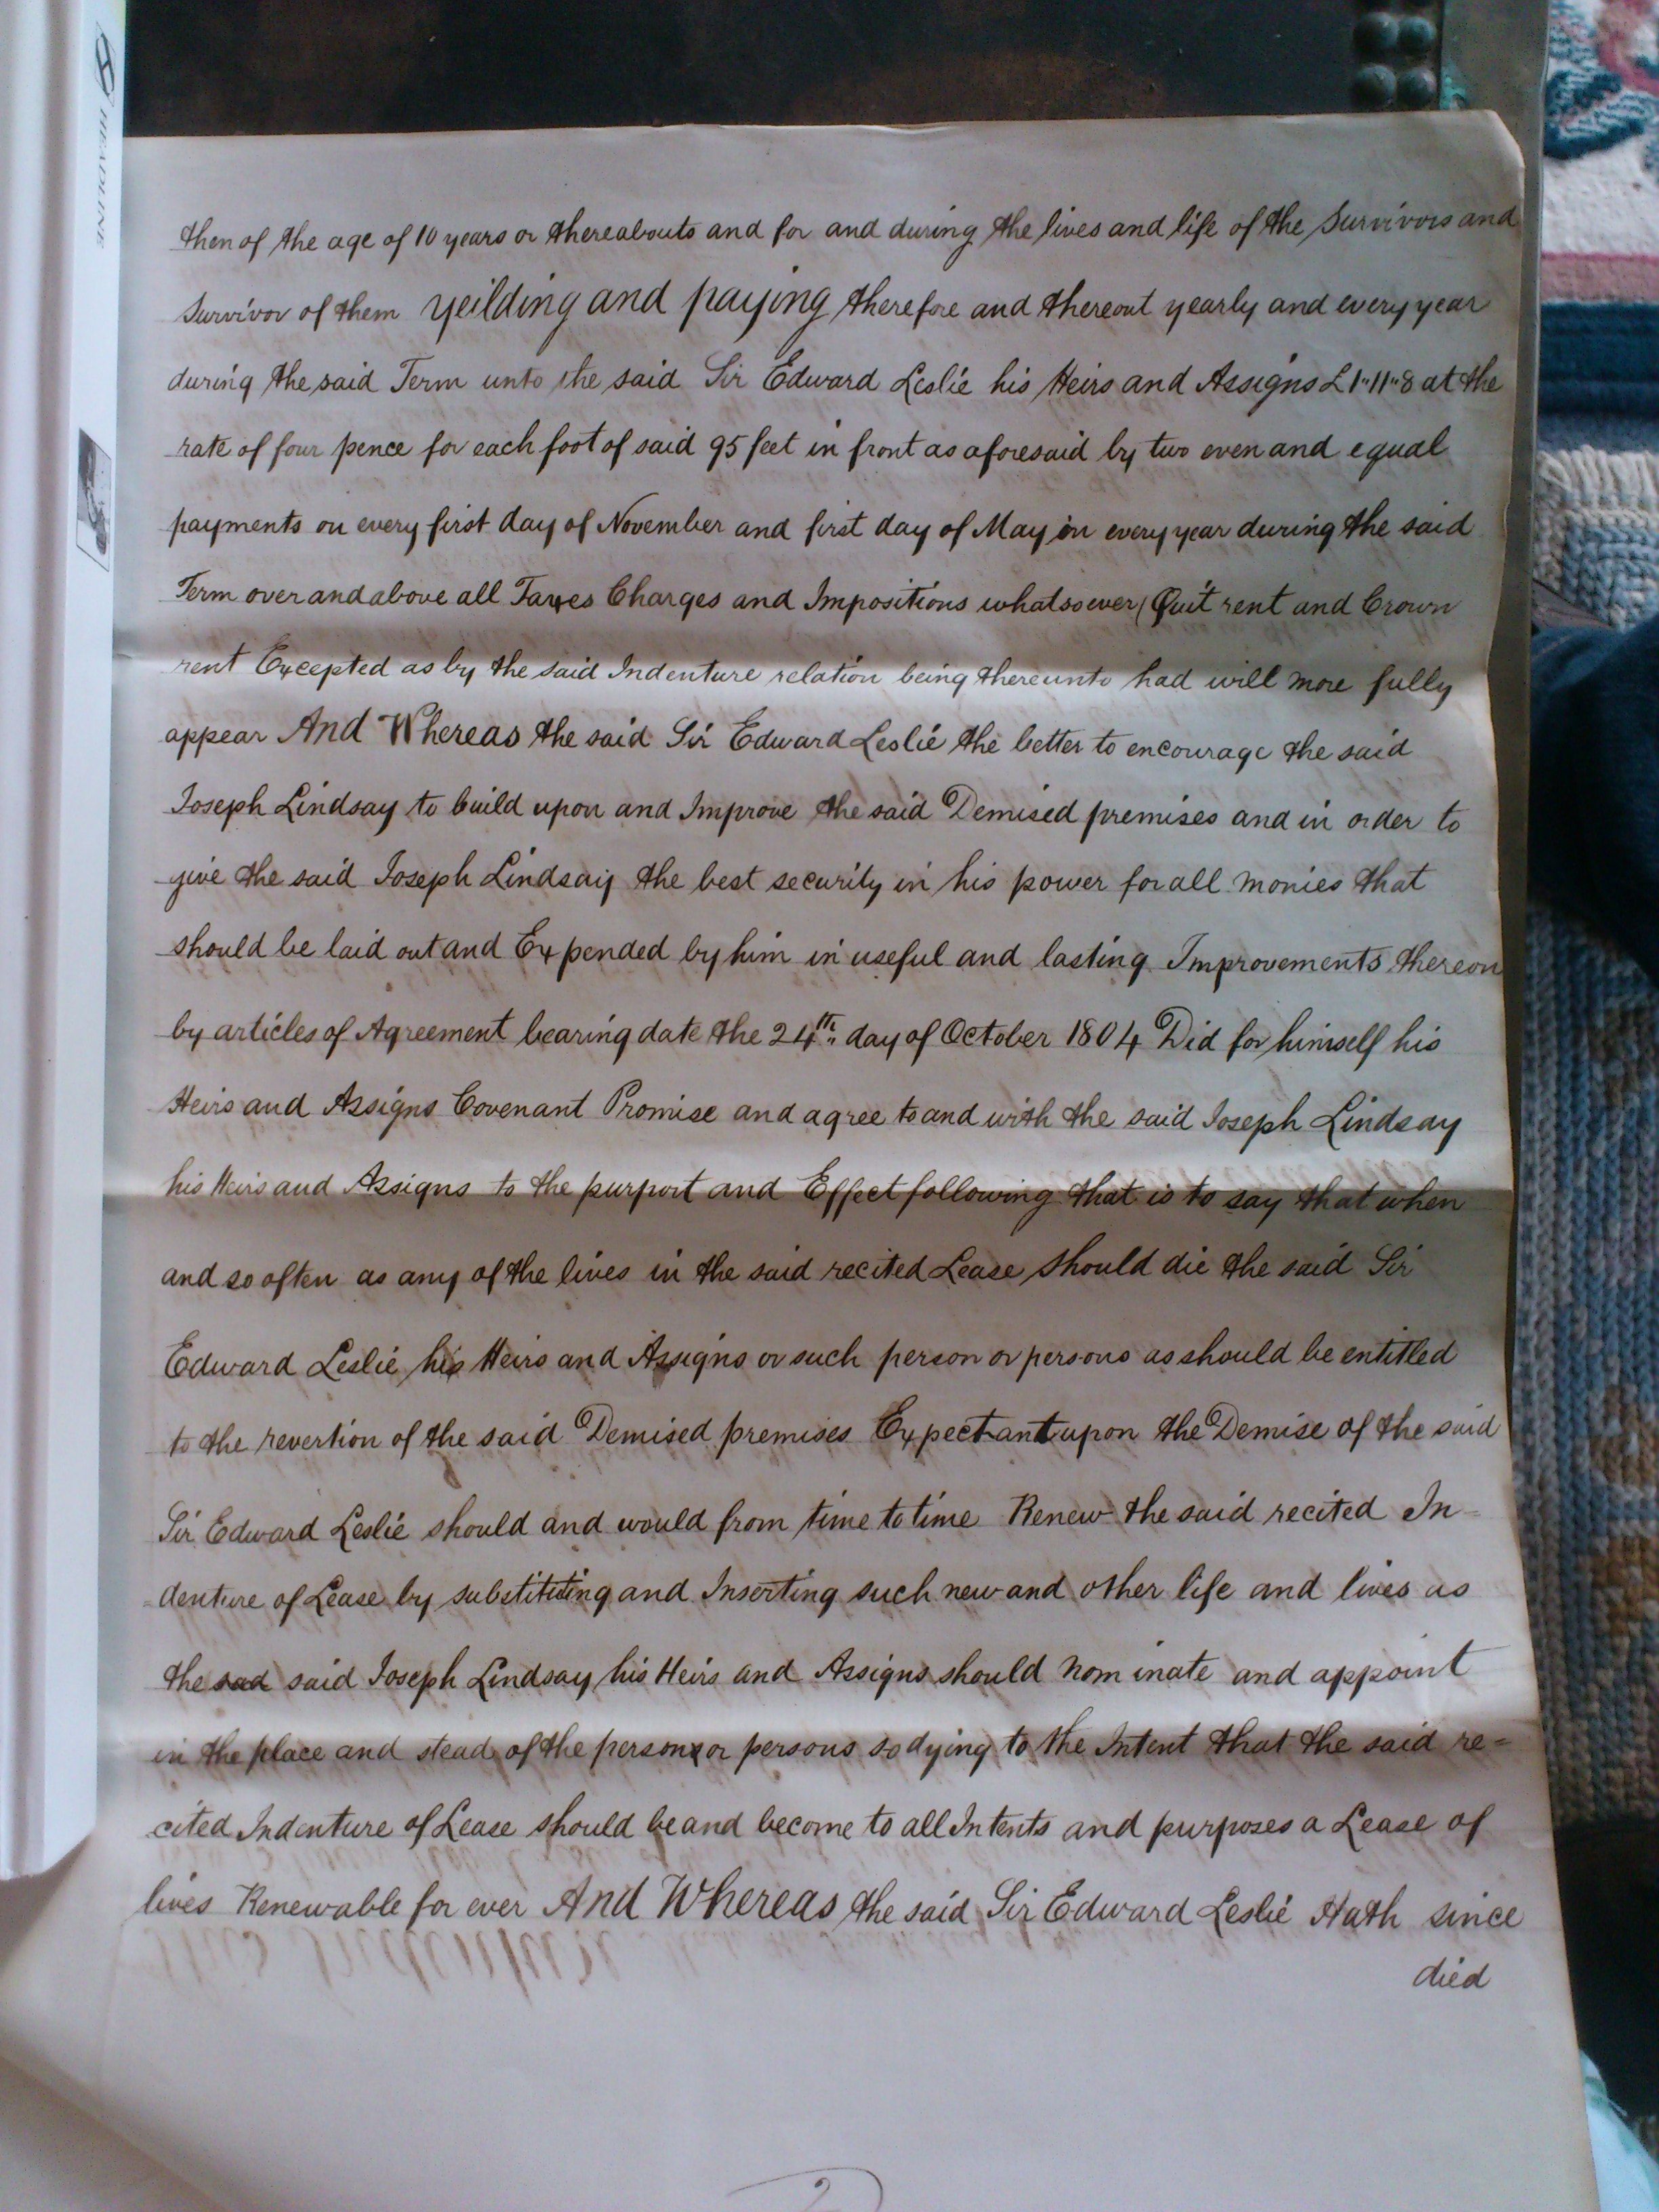 HEADLINE
then of the age of 10 years or thereabouts and for and during the lives and life of the Survivors and
Survivor of them yeilding and paying therefore and thereout yearly and every year
during the said Term unto the said Sir Edward Leslie his Heirs and Assigns £1"11"8 at the
rate of four pence for each foot of said 95 feet in front as aforesaid by two even and equal
payments on every first day of November and first day of May in every year during the said
Term over and above all Taxes Charges and Impositions whatsoever (Quit rent and Crown
rent Excepted as by the said Indenture relation being thereunto had will more fully
appear And Whereas the said Sir Edward Leslie the better to encourage the said
Joseph Lindsay to build upon and Improve the said Demised premises and in order to
give the said Joseph Lindsay the best security in his power for all monies that
should be laid out and Expended by him in useful and lasting Improvements thereon
by articles of Agreement bearing date the 24th day of October 1804 Did for himself his
Heirs and Assigns Covenant Promise and agree to and with the said Joseph Lindsay
his Heirs and Assigns to the purport and Effect following that is to say that when
and so often as any of the lives in the said recited Lease should die the said Sir
Edward Leslie his Heirs and Assigns or such person or persons as should be entitled
to the revertion of the said Demised premises Expectant upon the Demise of the said
Sir Edward Leslie should and would from time to time Renew the said recited In=
=denture of Lease by substituting and Inserting such new and other life and lives as
the sad said Joseph Lindsay his Heirs and Assigns should nominate and appoint
in the place and stead of the person or persons so dying to the Intent that the said re=
cited Indenture of Lease should be and become to all Intents and purposes a Lease of
lives Renewable for ever And Whereas the said Sir Edward Leslie Hath since
died
2